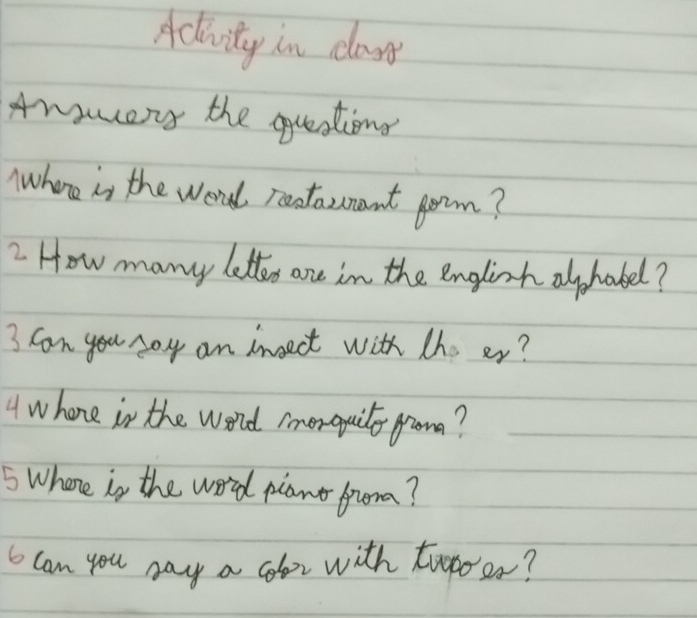 Activity in class
Answers the questions
1 Where is the word restaurant form?
2 How many letter are in the english alphabel?
3 Can you say an insect with es?
4 Where is the word mosquito from?
5 Where is the word piano from?
6 Can you say a color with es?